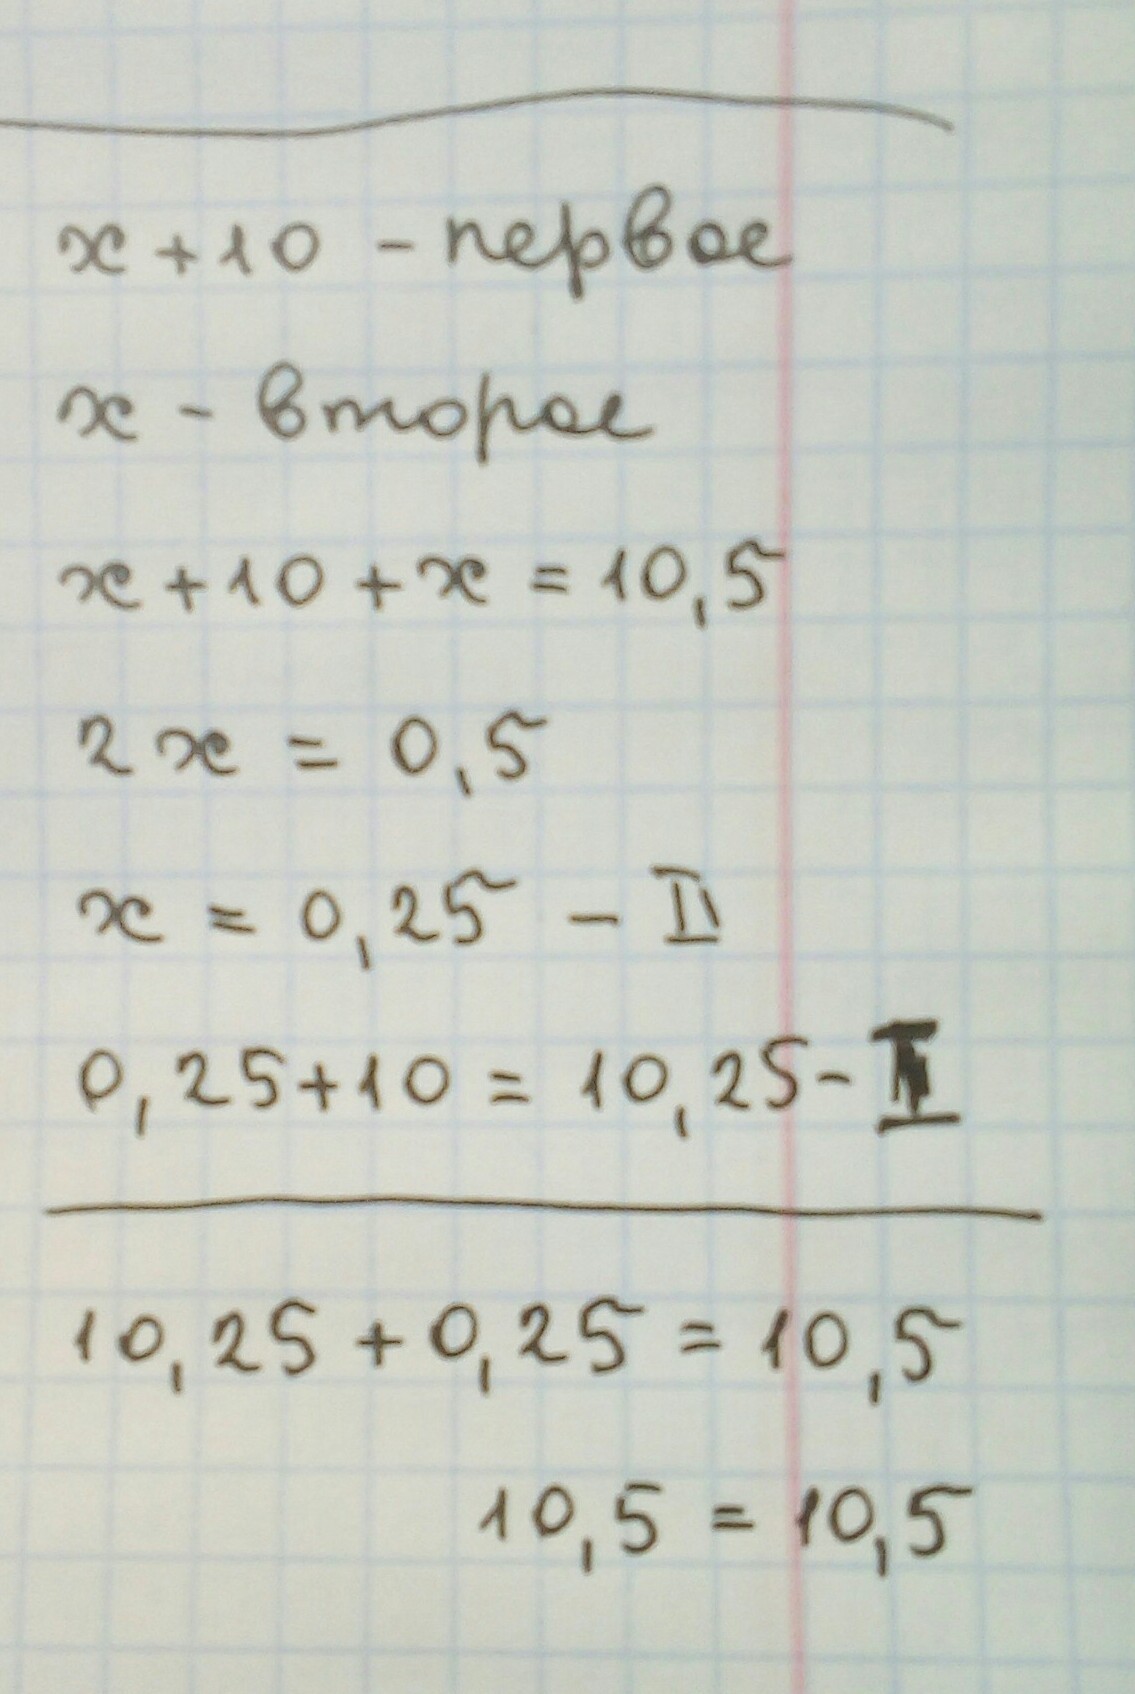 x + 10 - первое
x - второе
x + 10 + x = 10,5
2x = 0,5
x = 0,25 - II
0,25 + 10 = 10,25 - I
10,25 + 0,25 = 10,5
10,5 = 10,5